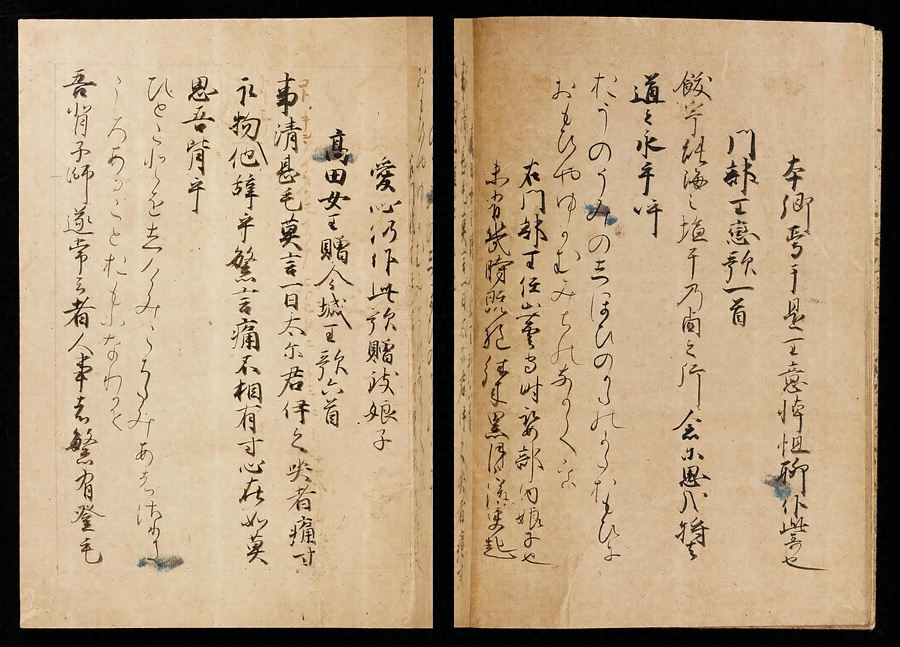 本郷焉于是王意悼怛聊作此哥也
門部王戀歌一首
飫宇能海之塩干乃鹵之片念尓思哉将去
道之永手呼
おうのうみのしほひのかたのかたおもひに
おもひやゆかむみちのなかてを
右門部王任出雲守時娶部内娘子也
未有幾時既絶往来累月之後更起
愛心仍作此歌贈致娘子
高田女王贈今城王歌六首
事清甚毛莫言一日太尓君伊之哭者痛寸
取物他辞乎繁言痛不相有寸心在如莫
思吾背子
ひとことをしけみこちたみあはさりき
こゝろあることおもふなわかせ
吾背子師遂常云者人事者繁有登毛